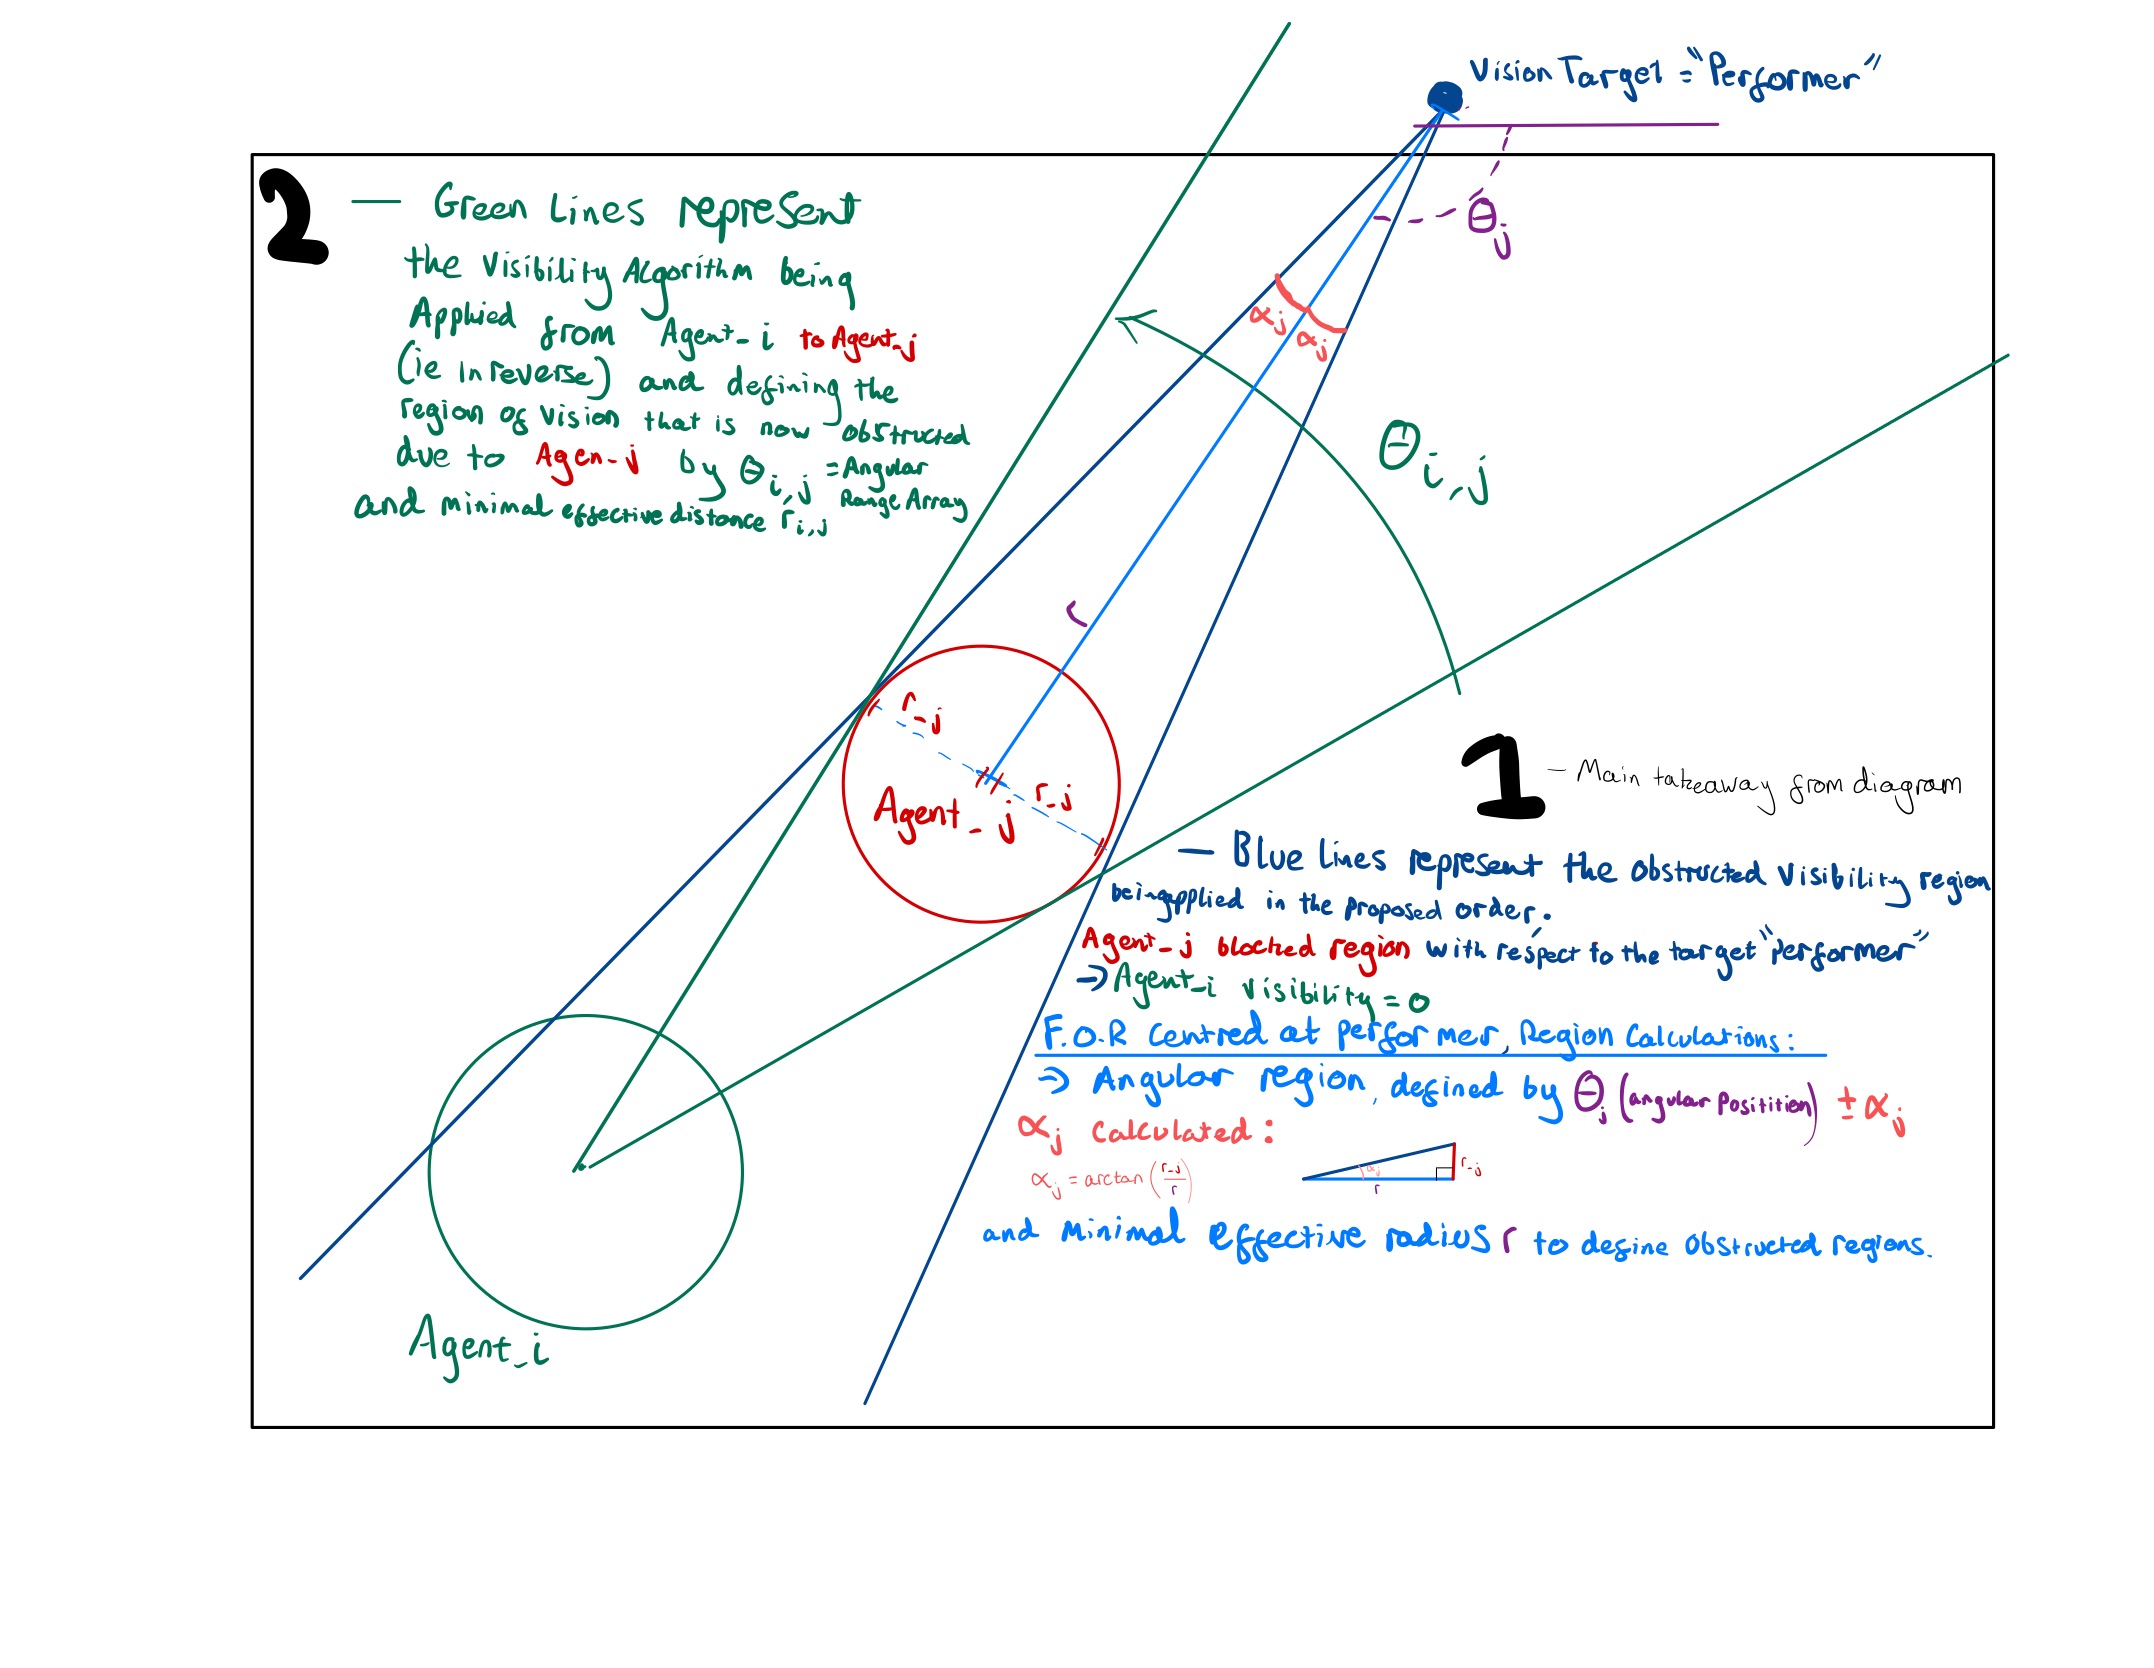 Vision Target = "Performer"
2
— Green Lines represent
the Visibility Algorithm being
Applied from Agent_i to Agent_j
(ie In reverse) and defining the
region of vision that is now obstructed
due to Agen_j by θi,j = Angular
Range Array
and minimal effective distance ri,j
θj
αj
αj
θi,j
r
r_j
r_j
Agent_j
Agent_i
1 — Main takeaway from diagram
— Blue Lines represent the Obstructed Visibility region
being applied in the proposed order.
Agent_j blocked region with respect to the target "performer"
⇒ Agent_i visibility = 0
F.O.R Centred at performer, Region Calculations:
⇒ Angular region, defined by θj (angular positition) ± αj
αj Calculated:
αj = arctan (r_j / r)
αj
r
r_j
and minimal effective radius r to define obstructed regions.